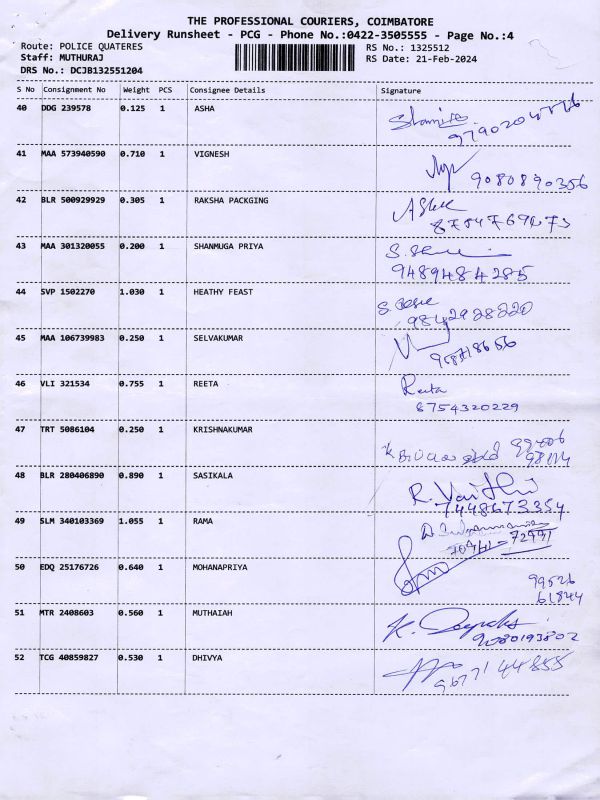 THE PROFESSIONAL COURIERS, COIMBATORE
Delivery Runsheet - PCG - Phone No.:0422-3505555 - Page No.:4
Route: POLICE QUATERES RS No.: 1325512
Staff: MUTHURAJ RS Date: 21-Feb-2024
DRS No.: DCJB132551204
S No Consignment No Weight PCS Consignee Details Signature
40 DDG 239578 0.125 1 ASHA
41 MAA 573940590 0.710 1 VIGNESH
9080890356
42 BLR 500929929 0.305 1 RAKSHA PACKGING
43 MAA 301320055 0.200 1 SHANMUGA PRIYA
9489484285
44 SVP 1502270 1.030 1 HEATHY FEAST
9842928220
45 MAA 106739983 0.250 1 SELVAKUMAR
46 VLI 321534 0.755 1 REETA
Reeta
8754320229
47 TRT 5086104 0.250 1 KRISHNAKUMAR
48 BLR 280406890 0.890 1 SASIKALA
R. Vaithi
7448673354
49 SLM 340103369 1.055 1 RAMA
50 EDQ 25176726 0.640 1 MOHANAPRIYA
99526
61844
51 MTR 2408603 0.560 1 MUTHAIAH
9080193802
52 TCG 40859827 0.530 1 DHIVYA
9677144855